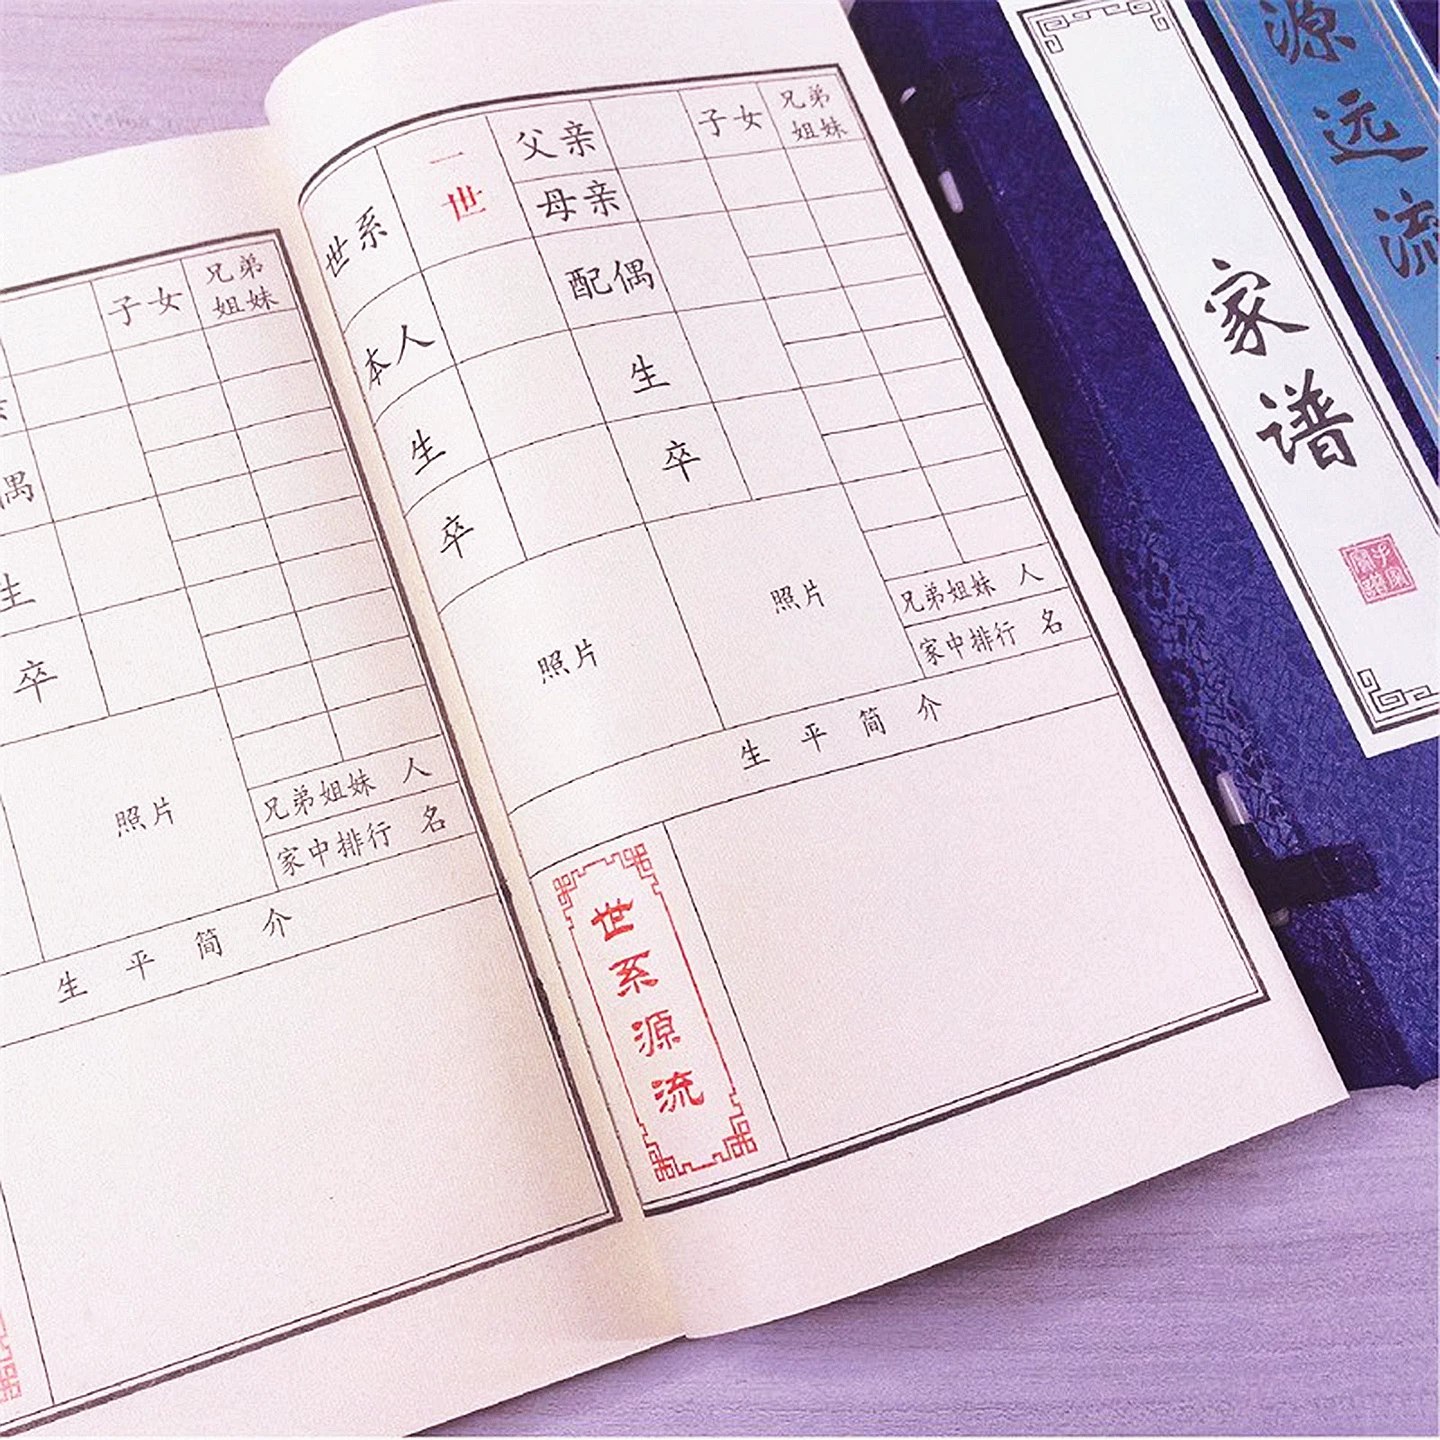 子女
兄弟
姐妹
偶
生
卒
照片
兄弟姐妹 人
家中排行 名
生平简介
世系
一世
父亲
母亲
子女
兄弟
姐妹
本人
配偶
生
生
卒
卒
照片
照片
兄弟姐妹 人
家中排行 名
生平简介
世系源流
家谱
源远流